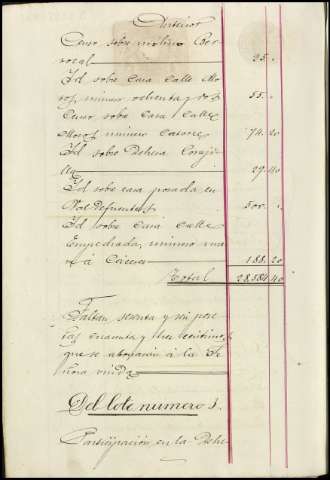 Anterior
Censo sobre molino Ber
rocal 25 "
Id sobre Casa Calle Mo
ros numero ochenta y dos 55 "
Censo sobre Casa Calle
Moros numero Catorce 74 20
Id sobre Dehesa Coneji
29 40
Id sobre casa posada en
Val-defuentes 500 "
Id sobre Casa Calle
Empedrada, numero nue
ve á Cáceres 188 20
Total 28,584 40
Faltan, sesenta y seis pese
tas cuarenta y tres centimos
que se abonarán á la Se
ñora viuda
Del lote numero 3.
Participacion en la Dehe